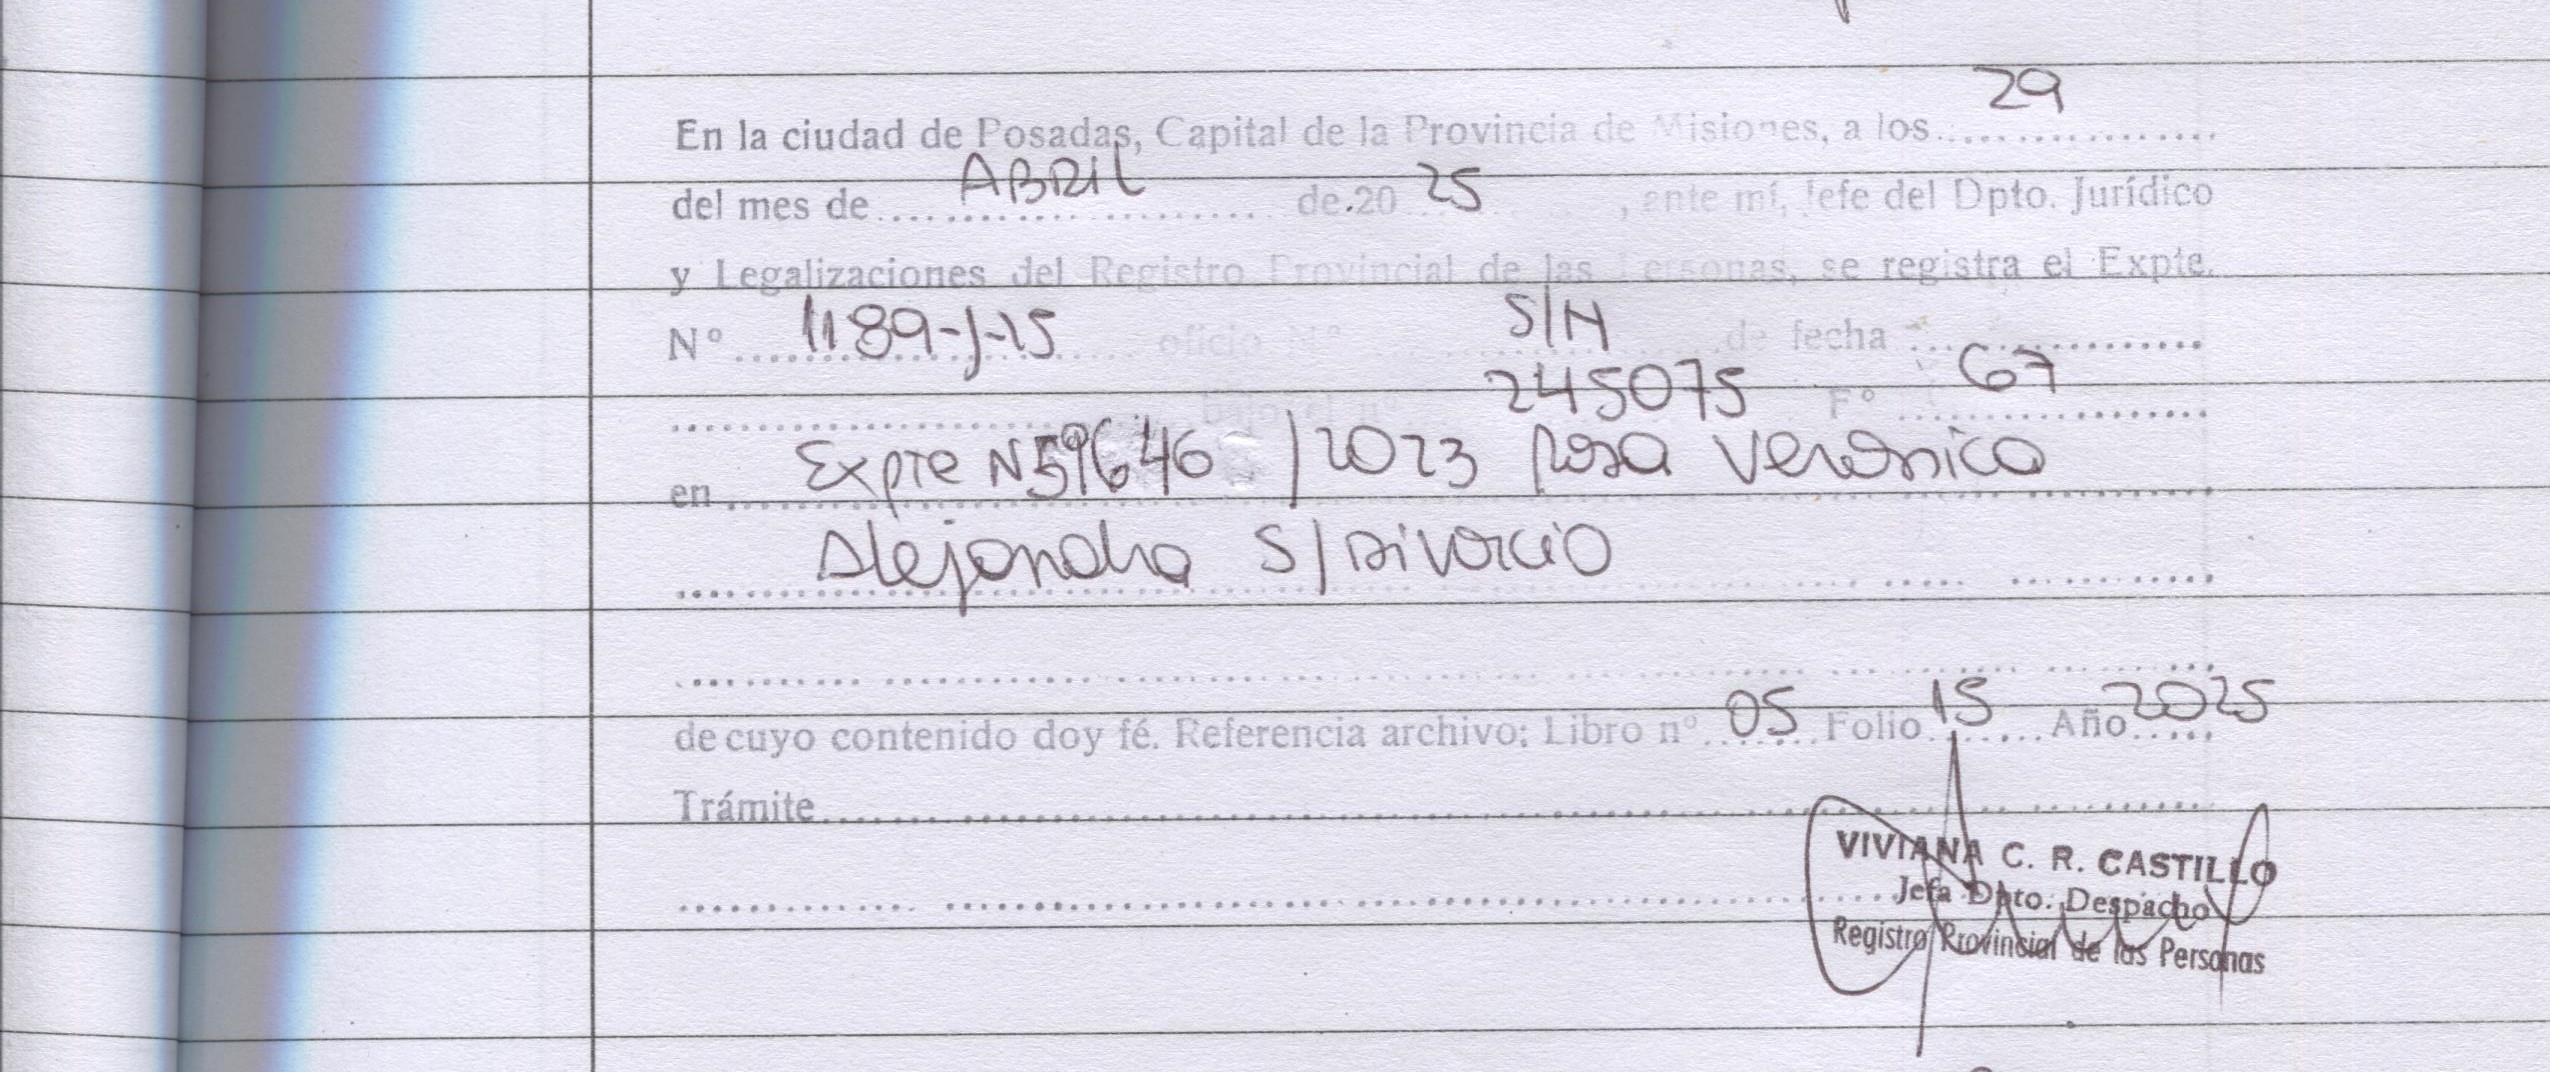 29
En la ciudad de Posadas, Capital de la Provincia de Misiones, a los
del mes de ABRIL de 20 25, ante mí, Jefe del Dpto. Jurídico
y Legalizaciones del Registro Provincial de las Personas, se registra el Expte.
Nº 1189-J-15 oficio Nº S/N de fecha
245075 Fº 67
en Expte N59646 /2023 Rosa Veronica
Alejandra S/Divorcio
de cuyo contenido doy fé. Referencia archivo: Libro nº 05 Folio 15 Año 2025
Trámite
VIVIANA C. R. CASTILLO
Jefa Dpto. Despacho
Registro Provincial de las Personas